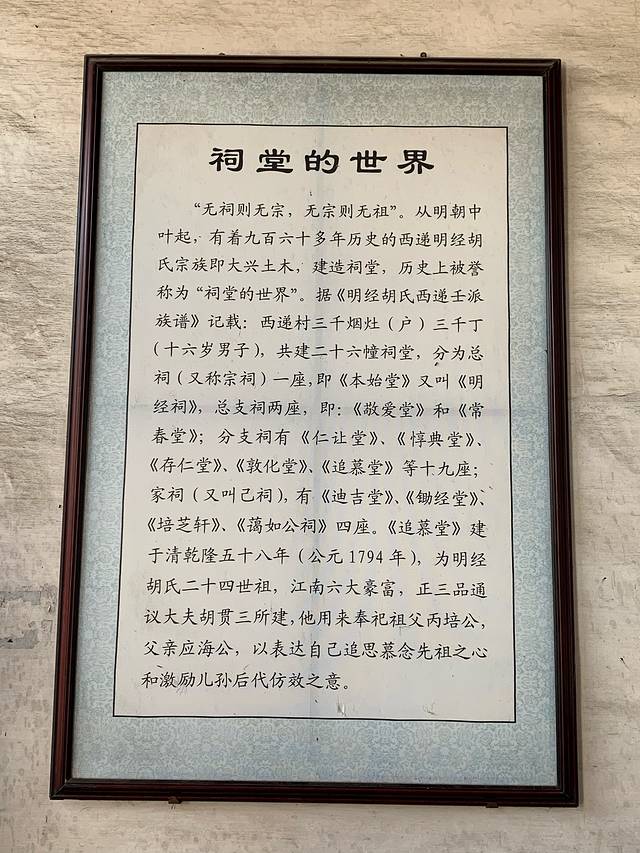 祠堂的世界
“无祠则无宗，无宗则无祖”。从明朝中
叶起，有着九百六十多年历史的西递明经胡
氏宗族即大兴土木，建造祠堂，历史上被誉
称为“祠堂的世界”。据《明经胡氏西递壬派
族谱》记载：西递村三千烟灶（户）三千丁
（十六岁男子），共建二十六幢祠堂，分为总
祠（又称宗祠）一座，即《本始堂》又叫《明
经祠》，总支祠两座，即：《敬爱堂》和《常
春堂》；分支祠有《仁让堂》、《惇典堂》、
《存仁堂》、《敦化堂》、《追慕堂》等十九座；
家祠（又叫己祠），有《迪吉堂》、《锄经堂》、
《培芝轩》、《蔼如公祠》四座。《追慕堂》建
于清乾隆五十八年（公元1794年），为明经
胡氏二十四世祖，江南六大豪富，正三品通
议大夫胡贯三所建，他用来奉祀祖父丙培公，
父亲应海公，以表达自己追思慕念先祖之心
和激励儿孙后代仿效之意。